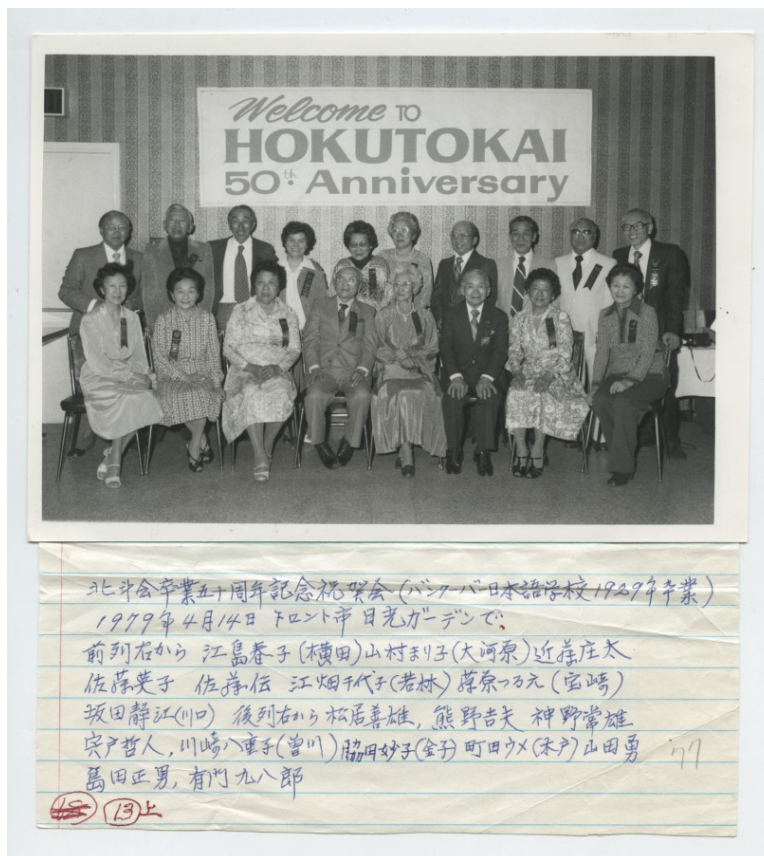 Welcome TO
HOKUTOKAI
50th Anniversary
北斗会卒業五十周年記念祝賀会(バンクーバー日本語学校1929年卒業)
1979年4月14日 トロント市 日光ガーデンで、
前列右から 江島春子(横田)山村まり子(大河原)近藤庄太
佐藤英子 佐藤伝 江畑千代子(若林)藤原つる元(宝崎)
坂田静江(川口) 後列右から 松居善雄, 熊野吉夫 神野常雄
宍戸哲人, 川崎八重子(曽川)脇田妙子(金子)町田ウメ(木戸)山田勇
島田正男, 有門九八郎
'77
13上